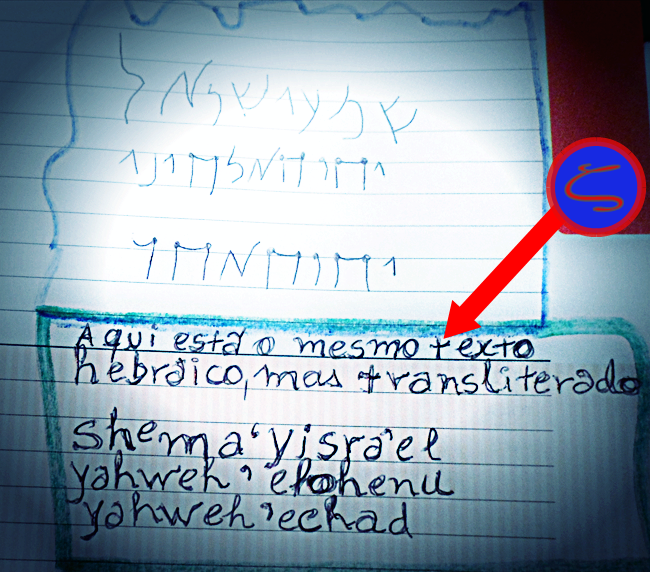 שמעישראל
יהוהאלהינו
יהוהאחד
Aqui está o mesmo texto
hebraico, mas transliterado
Shema‘ yisra'el
yahweh 'elohenu
yahweh 'echad